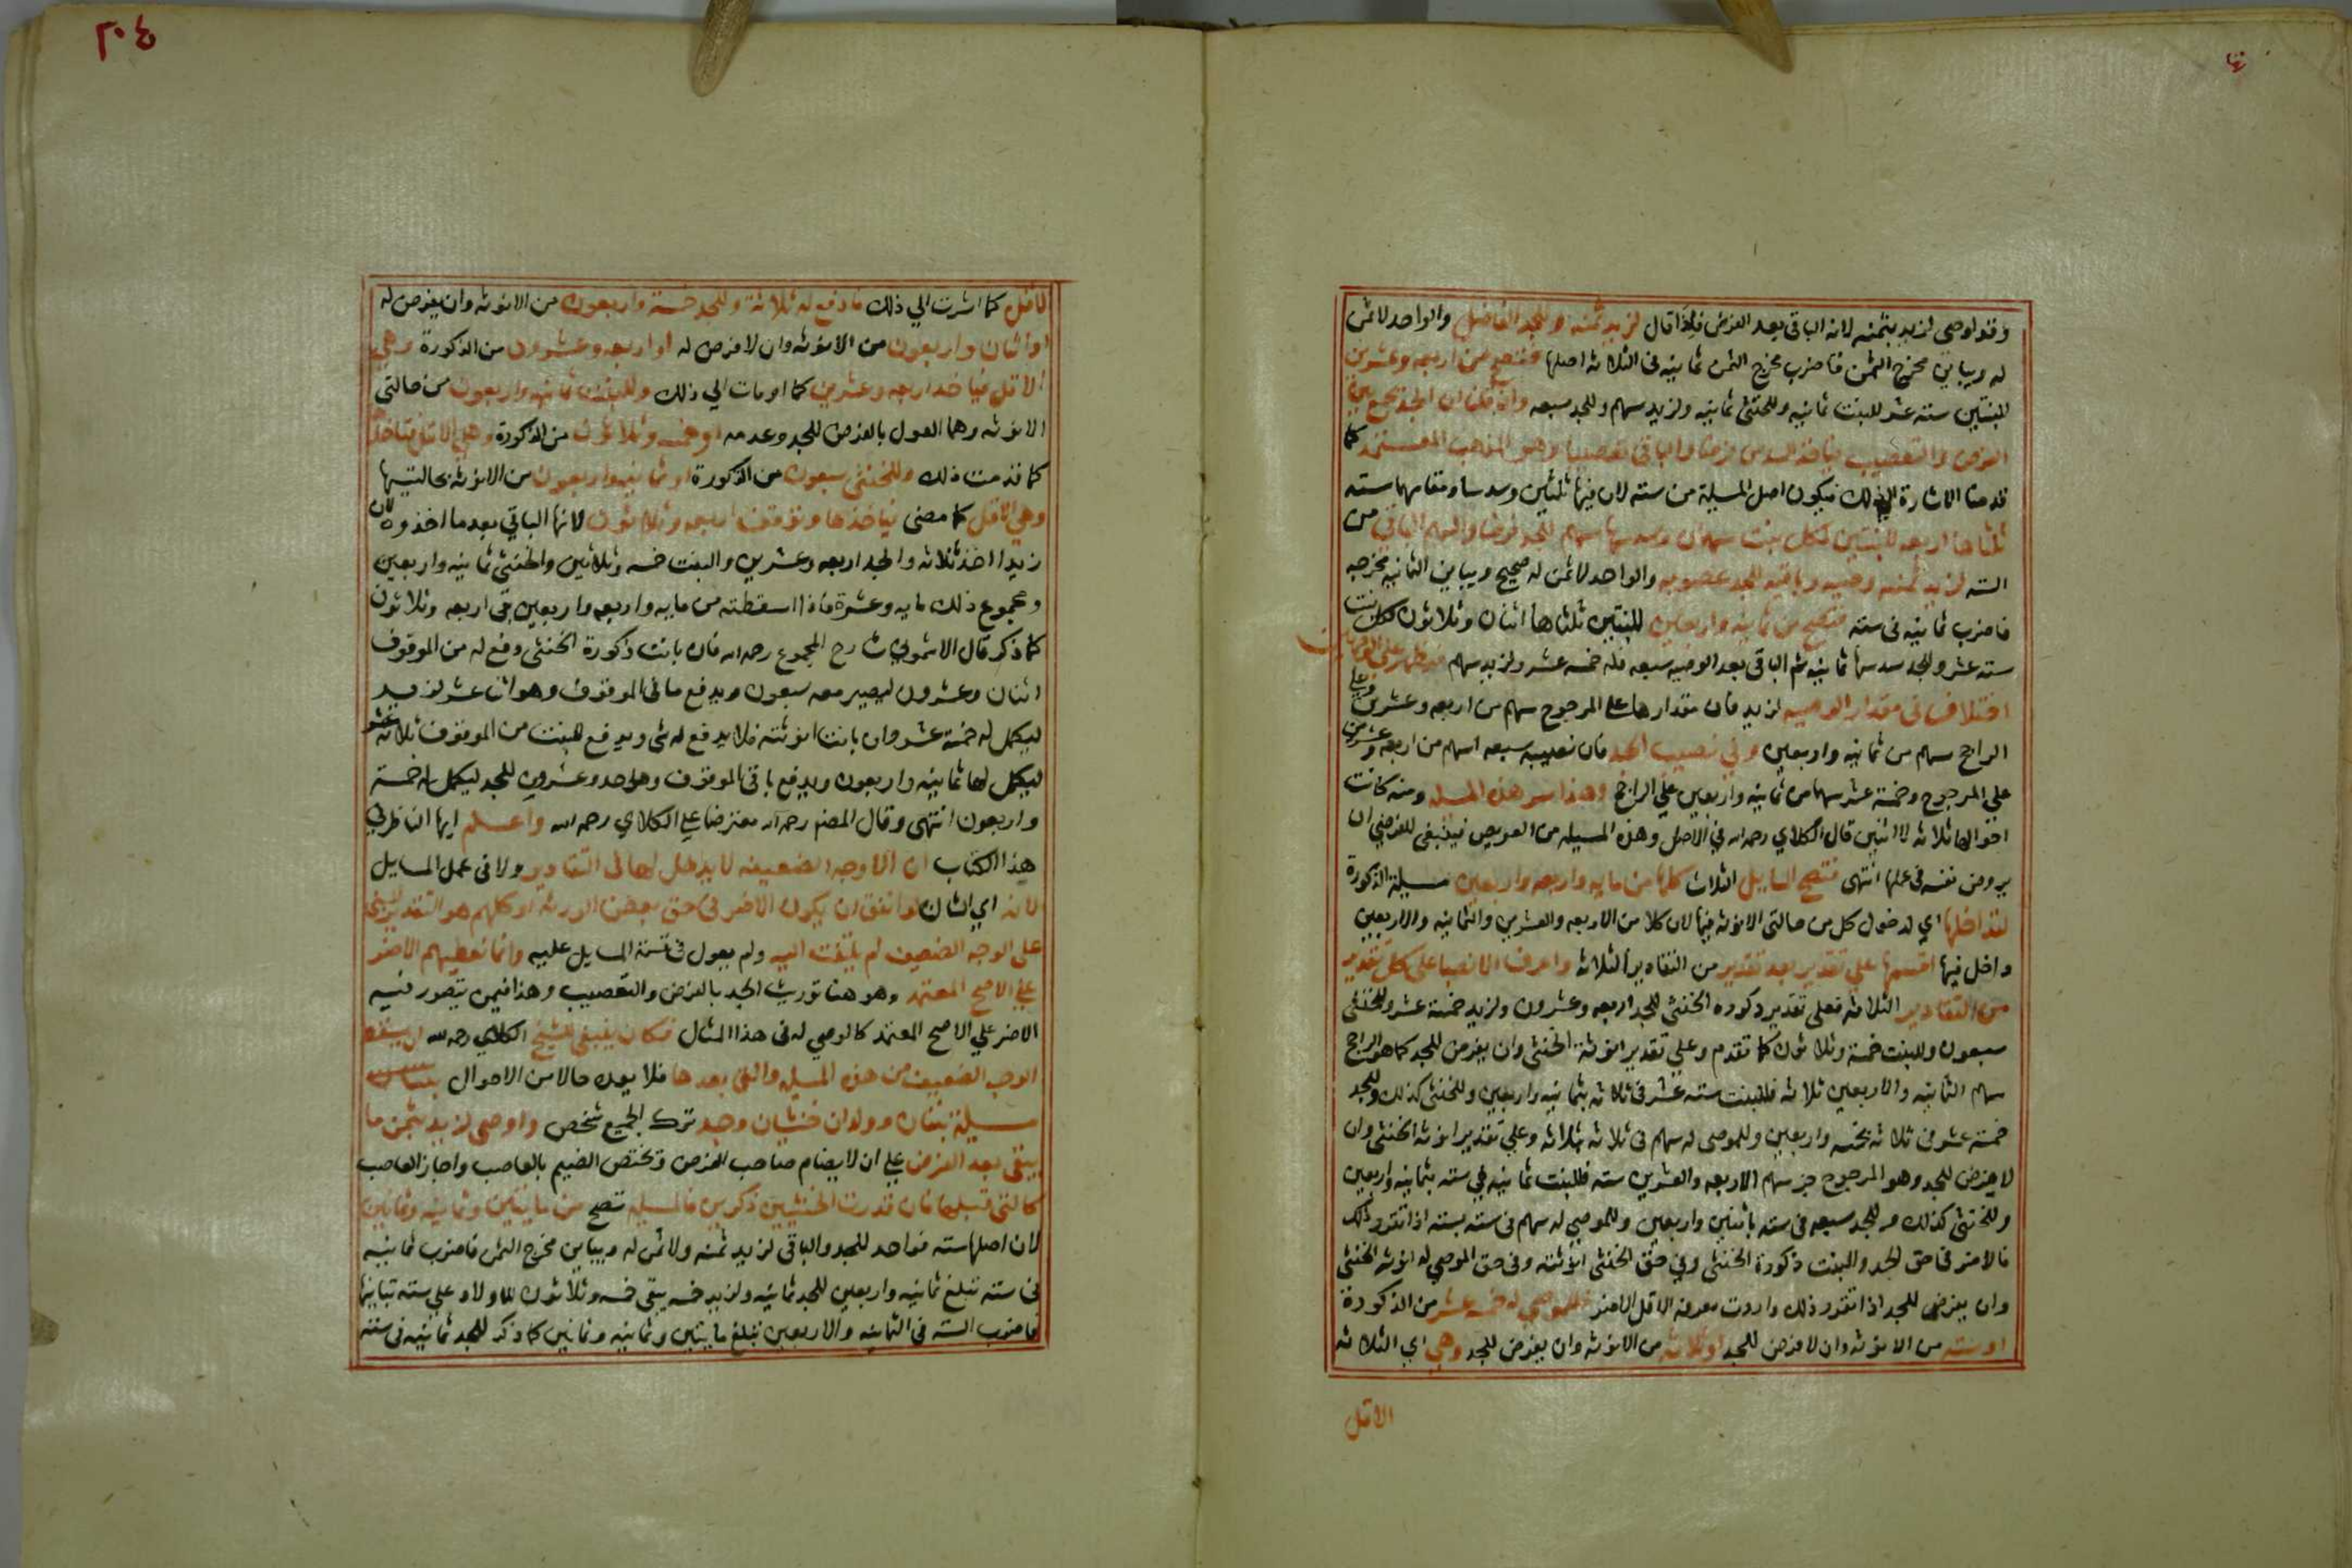 وقد اوصى لزيد بثمنه لانه الباقي بعد الفرض فلذا قال لزيد ثمنه وللجد الفاضل والواحد لا ثمن
له ويباين مخرج الثمن فاضرب مخرج الثمن ثمانيه في الثلاثه اصلها فتصح من اربعه وعشرين
للبنتين سته عشر للبنت ثمانيه وللخنثى ثمانيه ولزيد سهم وللجد سبعه وان قلنا ان الجد يجمع بين
الفرض والتعصيب فياخذ السدس فرضا والباقي تعصيبا وهو المذهب المعتمد كما
قدمنا الاشارة الي ذلك فيكون اصل المسيلة من سته لان فيها ثلثين وسدسا ومقامهما سته
ثلثاها اربعه للبنتين لكل بنت سهمان وسدسها سهم للجد فرضا والسهم الباقي من
السته لزيد ثمنه وصيه وباقيه للجد عصوبه والواحد لا ثمن له صحيح ويباين الثمانيه مخرجه
فاضرب ثمانيه في سته فتصح من ثمانيه واربعين للبنتين ثلثاها اثنان وثلاثون لكل بنت
سته عشر وللجد سدسها ثمانيه ثم الباقي بعد الوصيه سبعه فله خمسه عشر ولزيد سهم
اختلاف في مقدار الوصيه لزيد فان مقدارها على المرجوح سهم من اربعه وعشرين وعلي
الراجح سهم من ثمانيه واربعين وفي نصيب الجد فان نصيبه سبعه اسهم من اربعه وعشرين
علي المرجوح وخمسة عشر سهما من ثمانيه واربعين علي الراجح وهذا سر هذه المسيله ومنه كانت
احوالها ثلاثه لا اثنين قال الكلاي رحمه الله في الاصل وهذه المسيله من العويص فينبغي للفرضي ان
يروض نفسه في عملها انتهى فتصح المسايل الثلاث كلها من مايه واربعه واربعين مسيلة الذكورة
لتداخلها اي لدخول كل من حالتي الانوثه فيها لان كلا من الاربعه والعشرين والثمانيه والاربعين
داخل فيها اقسمها علي تقدير بعد تقدير من التقادير الثلاثه واعرف الانصبا على كل تقدير
من التقادير الثلاثه فعلى تقدير ذكوره الخنثى للجد اربعه وعشرون ولزيد خمسة عشر وللخنثى
سبعون وللبنت خمسة وثلاثون كما تقدم وعلي تقدير انوثة الخنثى وان يفرض للجد كما هو الراجح
سهم الثمانيه والاربعين ثلاثه فللبنت سته عشر في ثلاثه بثمانيه واربعين وللخنثى كذلك وللجد
خمسة عشر في ثلاثه بخمسه واربعين وللموصى له سهم في ثلاثه بثلاثه وعلي تقدير انوثه الخنثى وان
لا يفرض للجد وهو المرجوح جز سهم الاربعه والعشرين سته فللبنت ثمانيه في سته بثمانيه واربعين
وللخنثى كذلك وللجد سبعه في سته باثنين واربعين وللموصي له سهم في سته بسته اذا تقرر ذلك
فالاضر في حق الجد والبنت ذكورة الخنثى وفي حق الخنثى انوثته وفي حق الموصي له انوثه الخنثى
وان يفرض للجد اذا تقرر ذلك واردت معرفة الاقل الاضر فللموصي له خمسه عشر من الذكورة
او سته من الانوثه وان لا فرض للجد او ثلاثه من الانوثه وان يفرض للجد وهي اي الثلاثه
الاقل
٢٠٤
الاقل كما اشرت الي ذلك فادفع له ثلاثة وللجد خمسة واربعون من الانوثه وان يفرض له
او اثنان واربعون من الانوثه وان لا فرض له او اربعه وعشرون من الذكورة وهي
الاقل فياخذ اربعه وعشرين كما اومات الي ذلك وللبنت ثمانيه واربعون من حالتي
الانوثه وهما القول بالفرض للجد وعدمه او خمسه وثلاثون من الذكورة وهي الاقل فتاخذها
كما قدمت ذلك وللخنثى سبعون من الذكورة او ثمانيه واربعون من الانوثه بحالتيها
وهي الاقل كما مضى فياخذها وتوقف اربعه وثلاثون لانها الباقي بعد ما اخذوه لان
زيدا اخذ ثلاثه والجد اربعه وعشرين والبنت خمسه وثلاثين والخنثى ثمانيه واربعين
ومجموع ذلك مايه وعشرة فاذا اسقطته من مايه واربعه واربعين بقي اربعه وثلاثون
كما ذكر قال الاشموني شارح المجموع رحمه الله فان بانت ذكورة الخنثى دفع له من الموقوف
اثنان وعشرون ليصير معه سبعون ويدفع ما في الموقوف وهو اثنا عشر لزيد
ليكمل له خمسة عشر وان بانت انوثته فلا يدفع له شي ويدفع للبنت من الموقوف ثلاثه عشر
ليكمل لها ثمانيه واربعون ويدفع باقي الموقوف وهو احد وعشرون للجد ليكمل له خمسة
واربعون انتهى وقال المصنف رحمه الله معترضا علي الكلاي رحمه الله واعلم ايها الناظر في
هذا الكتاب ان الاوجه الضعيفه لا يدخل لها في التقادير ولا في عمل المسايل
لانه اي الشان لو اتفق ان يكون الاضر في حق بعض الورثه او كلهم هو التقدير المبني
على الوجه الضعيف لم يلتفت اليه ولم يعول في قسمة المسايل عليه وانما نعطيهم الاضر
علي الاصح المعتمد وهو هنا توريث الجد بالفرض والتعصيب وهذا فيمن يتصور فيه
الاضر علي الاصح المعتمد كالموصي له في هذا المثال فكان ينبغي للشيخ الكلاي رحمه الله ان يسقط
الوجه الضعيف من هذه المسيله والتي بعدها فلا يعده حالا من الاحوال
مسيلة بنتان وولدان خنثيان وجد ترك الجميع شخص واوصى لزيد بثمن ما
يبقى بعد الفرض علي ان لا يضام صاحب الفرض ويختص الضيم بالعاصب واجاز العاصب
كالتي قبلها فان قدرت الخنثيين ذكرين فالمسيله تصح من مايتين وثمانيه وثمانين
لان اصلها سته فواحد للجد والباقي لزيد ثمنه ولا ثمن له ويباين مخرج الثمن فاضرب ثمانيه
في سته تبلغ ثمانيه واربعين للجد ثمانيه ولزيد خمسه يبقى خمسه وثلاثون للاولاد علي سته تباينها
فاضرب السته في الثمانيه والاربعين تبلغ مايتين وثمانيه وثمانين كما ذكر للجد ثمانيه في سته